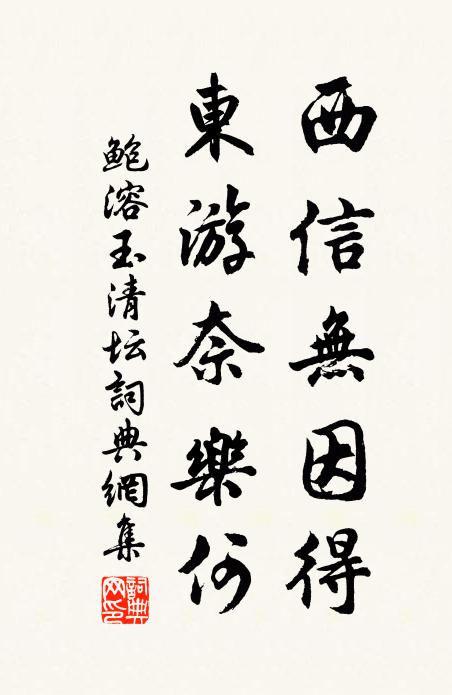 西信無因得
東游奈樂何
鲍溶玉清坛詞典網集
詞典網印